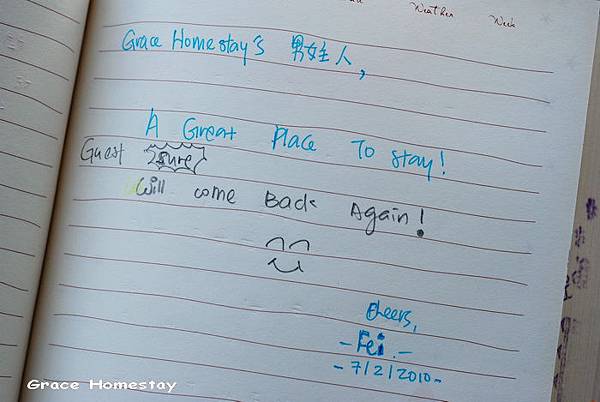 Weather Week
Grace Homestay's 男女主人,
A Great Place To stay!
Guest Sure
Will come Back Again!
Cheers,
- Fei. -
- 7/2/2010-
Grace Homestay